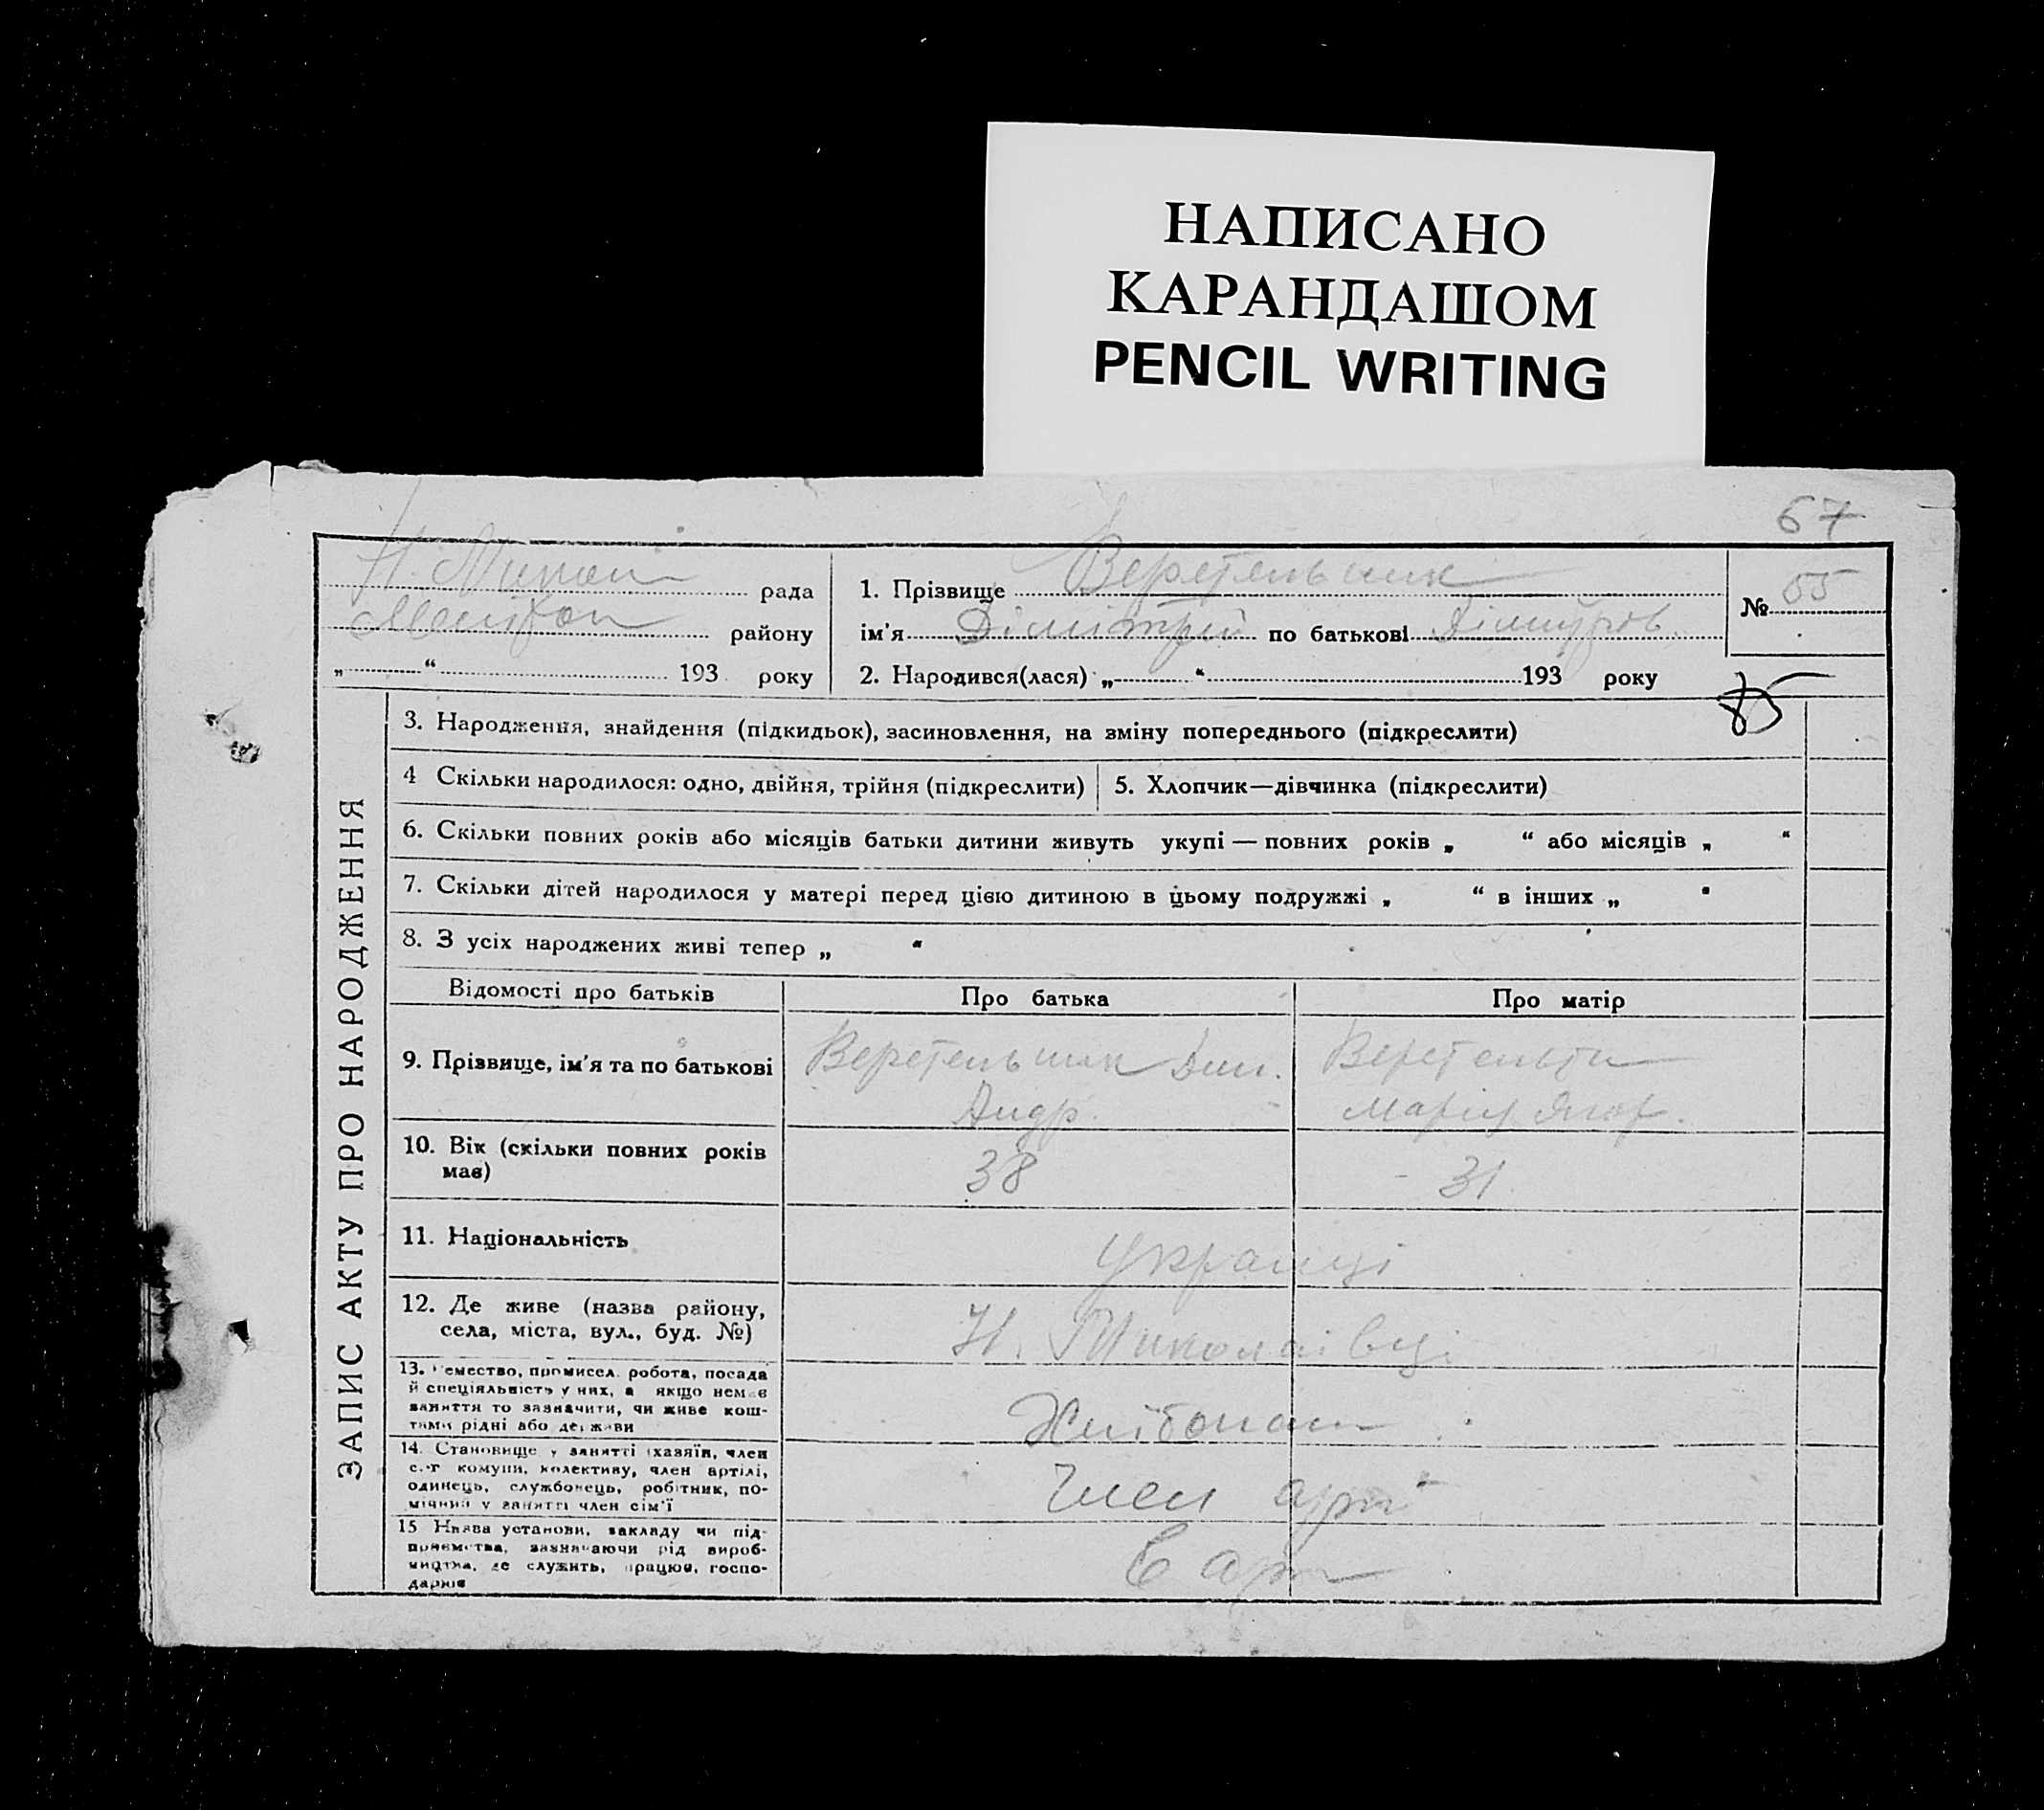 НАПИСАНО
КАРАНДАШОМ
PENCIL WRITING
67
Н. рада
району
„ “ 193 року
1. Прізвище Веретельник
ім'я Дімітрій по батькові
2. Народився(лася) „ “ 193 року
№ 55
ЗАПИС АКТУ ПРО НАРОДЖЕННЯ
3. Народження, знайдення (підкидьок), засиновлення, на зміну попереднього (підкреслити)
4 Скільки народилося: одно, двійня, трійня (підкреслити)
5. Хлопчик—дівчинка (підкреслити)
6. Скільки повних років або місяців батьки дитини живуть укупі — повних років „ “ або місяців „ “
7. Скільки дітей народилося у матері перед цією дитиною в цьому подружжі „ “ в інших „ “
8. З усіх народжених живі тепер „ “
Відомості про батьків
Про батька
Про матір
9. Прізвище, ім'я та по батькові
Веретельник Дим.
Андр.
Марія
10. Вік (скільки повних років
має)
38
31
11. Національність
12. Де живе (назва району,
села, міста, вул., буд. №)
Н. Миколаївці
13. Ремество, промисел, робота, посада
й спеціяльність у них, а якщо немає
заняття то зазначити, чи живе кош-
тами рідні або держави
14. Становище у занятті (хазяїн, член
с.-г комуни, колективу, член артілі,
одинець, службовець, робітник, по-
мічний у занятті член сім'ї
Член арт
15 Назва установи, закладу чи під-
приємства, зазначаючи рід вироб-
ництва, де служить, працює, госпо-
дарює
В арт